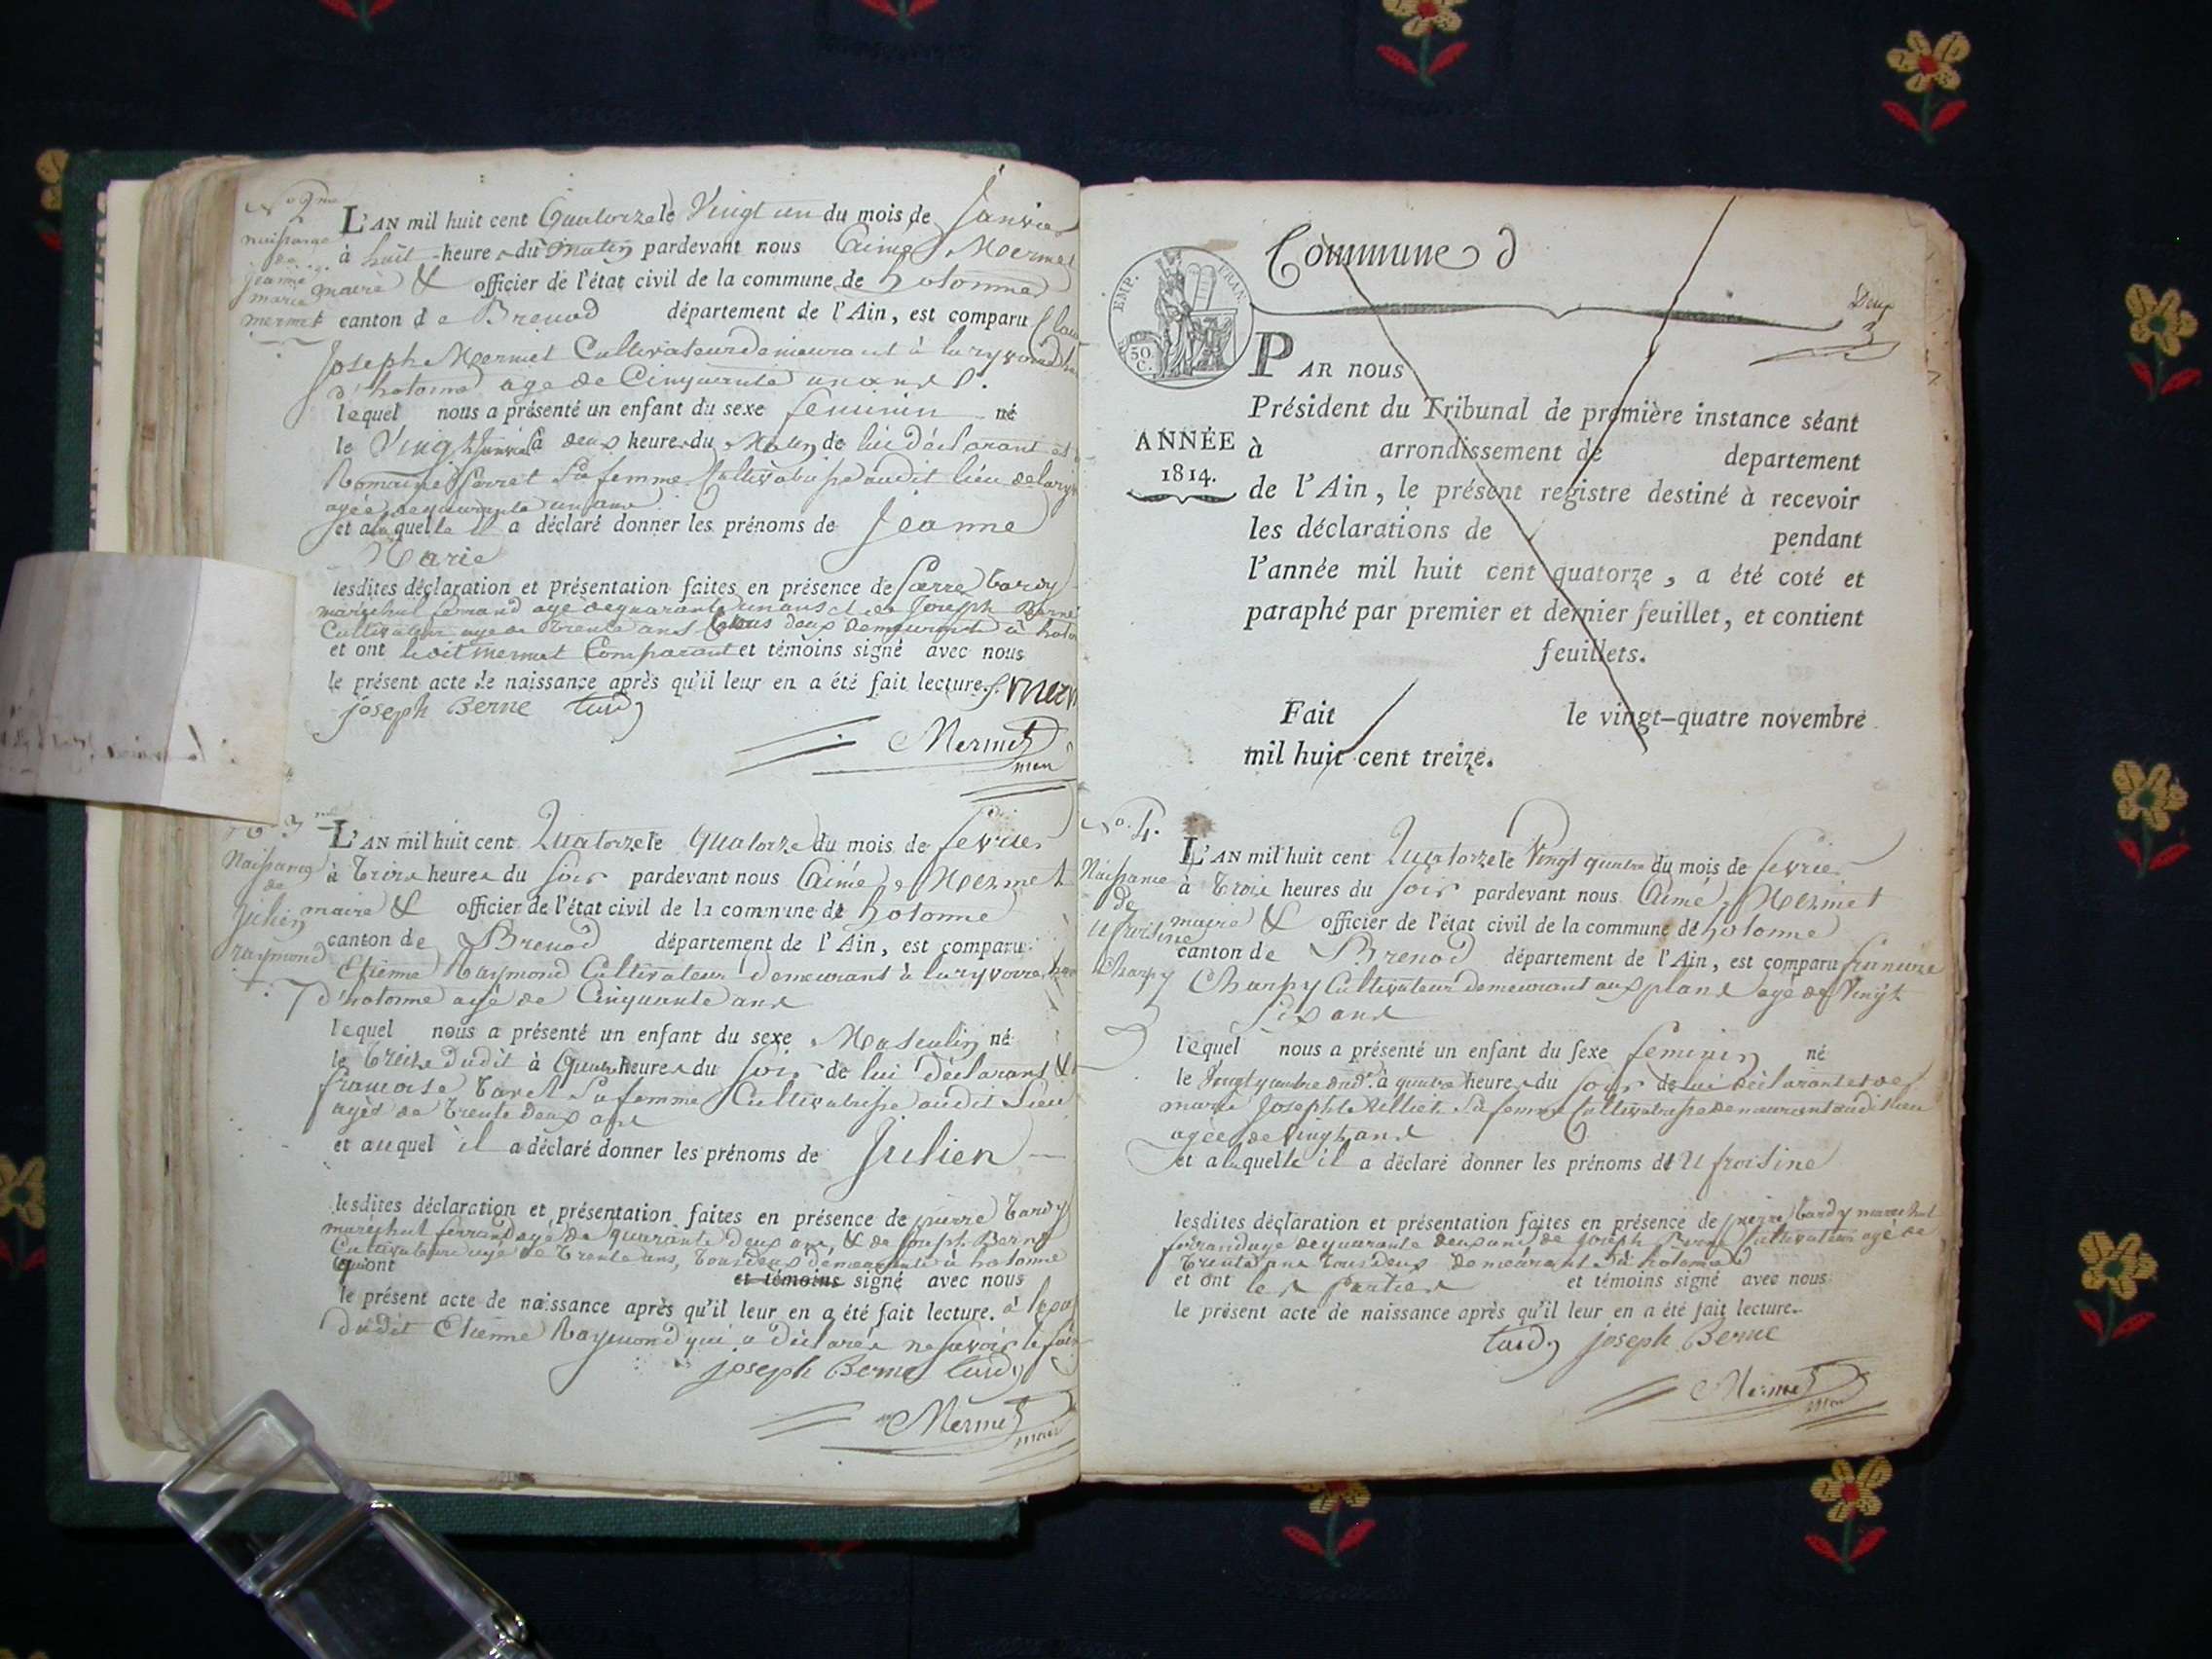 No 2me
naissance
de
jeanne
marie
mermet
L'AN mil huit cent Quatorze le Vingt un du mois de Janvier
à huit heures du matin pardevant nous Aimé Mermet
maire & officier de l'état civil de la commune de hotonne
canton de Brenod département de l'Ain, est comparu
Joseph Mermet Cultivateur demeurant à
d'hotonne agé de Cinquante un ans
lequel nous a présenté un enfant du sexe feminin né
le Vingt Janvier à deux heures du Matin de lui déclarant et
Romaine Perret sa femme Cultivatrisse audit lieu
agée de quarante un ans
et a laquelle il a déclaré donner les prénoms de Jeanne
Marie
lesdites déclaration et présentation faites en présence de pierre tardy
marechal ferrand agé de quarante un ans et de Joseph Berne
Cultivateur agé de trente ans tous deux demeurant à
et ont ledit mermet Comparant et témoins signé avec nous
le présent acte de naissance après qu'il leur en a été fait lecture.
joseph Berne tardy
Mermet
No 3me
Naissance
de
julien
raymond
L'AN mil huit cent Quatorze le Quatorze du mois de fevrier
à trois heures du soir pardevant nous Aimé Mermet
maire & officier de l'état civil de la commune de hotonne
canton de Brenod département de l'Ain, est comparu
Etienne Raymond Cultivateur demeurant à
d'hotonne agé de Cinquante ans
lequel nous a présenté un enfant du sexe Masculin né
le treize dudit à quatre heures du soir de lui déclarant &
francoise tavel sa femme Cultivatrisse audit Lieu
agés de trente deux ans
et auquel il a déclaré donner les prénoms de Julien
lesdites déclaration et présentation faites en présence de pierre tardy
maréchal ferrand agé de quarante deux ans & de Joseph Berne
Cultivateur agé de trente ans, tous deux demeurants à hotonne
qui ont et témoins signé avec nous
le présent acte de naissance après qu'il leur en a été fait lecture. à
dudit Etienne Raymond qui a déclaré ne savoir le faire
joseph Berne tardy
Mermet
maire
Commune d
Deux
2
EMP. FRAN.
50
C.
ANNÉE
1814.
PAR nous
Président du Tribunal de première instance séant
à arrondissement de departement
de l'Ain, le présent registre destiné à recevoir
les déclarations de pendant
l'année mil huit cent quatorze, a été coté et
paraphé par premier et dernier feuillet, et contient
feuillets.
Fait le vingt-quatre novembre
mil huit cent treize.
No. 4.
Naissance
de
Ufroisine
Charpy
L'AN mil huit cent Quatorze le Vingt quatre du mois de fevrier
à trois heures du soir pardevant nous Aimé Mermet
maire & officier de l'état civil de la commune de hotonne
canton de Brenod département de l'Ain, est comparu
Charpy Cultivateur demeurant aux plans agé de Vingt
six ans
lequel nous a présenté un enfant du sexe feminin né
le Vingt quatre dud. à quatre heures du soir de lui déclarant et de
marie Josephte sa femme Cultivatrisse demeurant audit lieu
agée de vingt ans
et a laquelle il a déclaré donner les prénoms de Ufroisine
lesdites déclaration et présentation faites en présence de pierre tardy marechal
ferrand agé de quarante deux ans de joseph Berne Cultivateur agé de
trente ans tous deux demeurant à hotonne
et ont les parties et témoins signé avec nous
le présent acte de naissance après qu'il leur en a été fait lecture.
tardy joseph Berne
Mermet